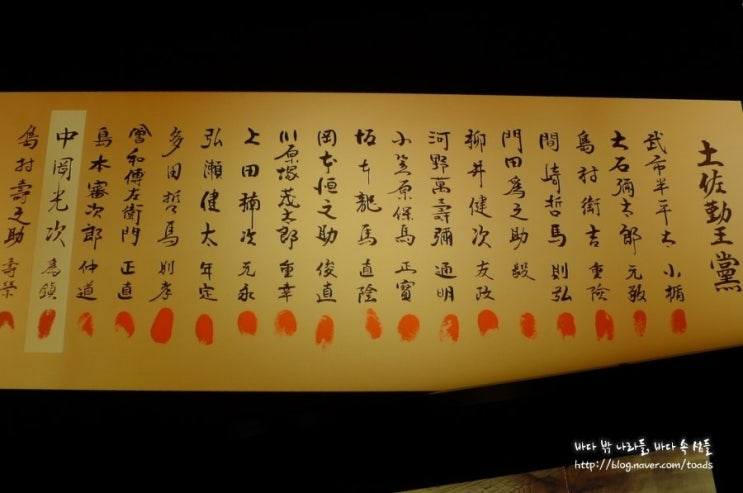 土佐勤王黨
武市半平太 小楯
大石彌太郎 元敬
島村衛吉 重險
間崎哲馬 則弘
門田爲之助 毅
柳井健次 友政
河野萬壽彌 通明
小笠原保馬 正實
坂本龍馬 直陰
岡本恒之助 俊直
川原塚茂太郎 重幸
上田楠次 元永
弘瀬健太 年定
多田哲馬 則孝
曾和傳左衛門 正直
島本審次郎 仲道
中岡光次 爲鎮
島村壽之助 壽榮
바다 밖 나라들, 바다 속 섬들
http://blog.naver.com/toads